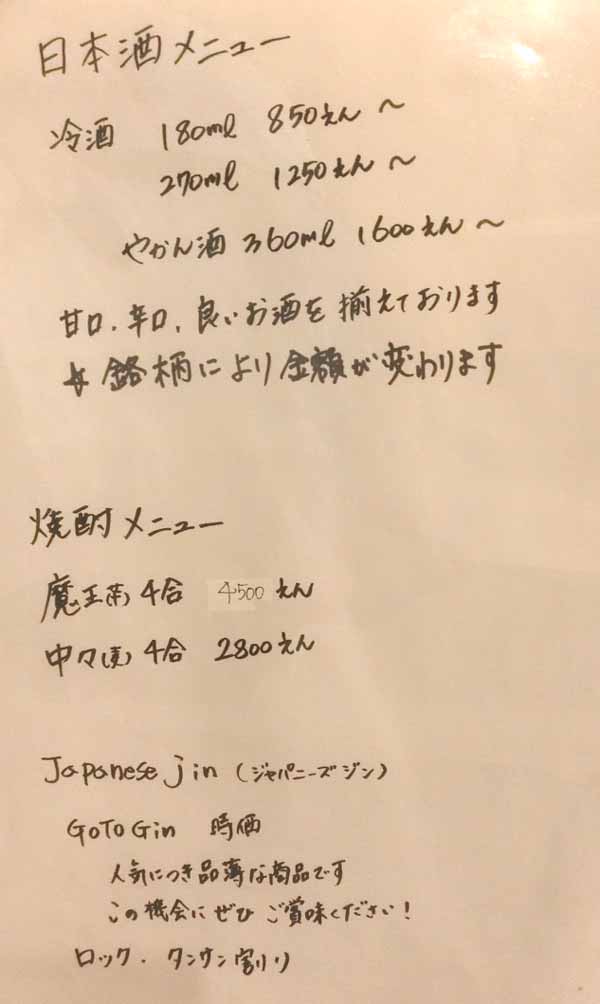 日本酒メニュー
冷酒 180ml 850えん〜
270ml 1250えん〜
やかん酒 360ml 1600えん〜
甘口、辛口、良いお酒を揃えております
☆銘柄により金額が変わります
焼酎メニュー
魔王(芋) 4合 4500えん
中々(麦) 4合 2800えん
Japanese jin (ジャパニーズジン)
GOTO Gin 時価
人気につき品薄な商品です
この機会にぜひご賞味ください！
ロック・タンサン割り